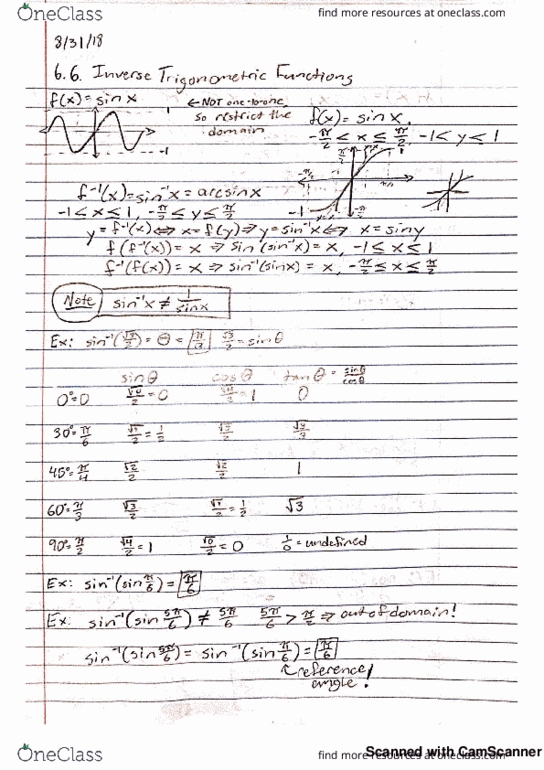 OneClass
find more resources at oneclass.com
8/31/18
6.6. Inverse Trigonometric Functions
f(x) = sin x
← NOT one-to-one, so restrict the domain
1
-1
f(x) = sin x,
-π/2 ≤ x ≤ π/2, -1 ≤ y ≤ 1
f⁻¹(x) = sin⁻¹x = arcsinx
-1 ≤ x ≤ 1, -π/2 ≤ y ≤ π/2
y = f⁻¹(x) ⇔ x = f(y) ⇒ y = sin⁻¹x ⇔ x = siny
f(f⁻¹(x)) = x ⇒ sin(sin⁻¹x) = x, -1 ≤ x ≤ 1
f⁻¹(f(x)) = x ⇒ sin⁻¹(sinx) = x, -π/2 ≤ x ≤ π/2
Note sin⁻¹x ≠ 1/sinx
Ex: sin⁻¹(√3/2) = θ = π/3 √3/2 = sinθ
sinθ cosθ tanθ = sinθ/cosθ
0°=0 √0/2 = 0 √4/2 = 1 0
30°=π/6 √1/2 = 1/2 √3/2 √3/3
45°=π/4 √2/2 √2/2 1
60°=π/3 √3/2 √1/2 = 1/2 √3
90°=π/2 √4/2 = 1 √0/2 = 0 1/0 = undefined
Ex: sin⁻¹(sin π/6) = π/6
Ex: sin⁻¹(sin 5π/6) ≠ 5π/6 5π/6 > π/2 ⇒ out of domain!
sin⁻¹(sin 5π/6) = sin⁻¹(sin π/6) = π/6
reference angle!
OneClass
find more resources at oneclass.com
Scanned with CamScanner